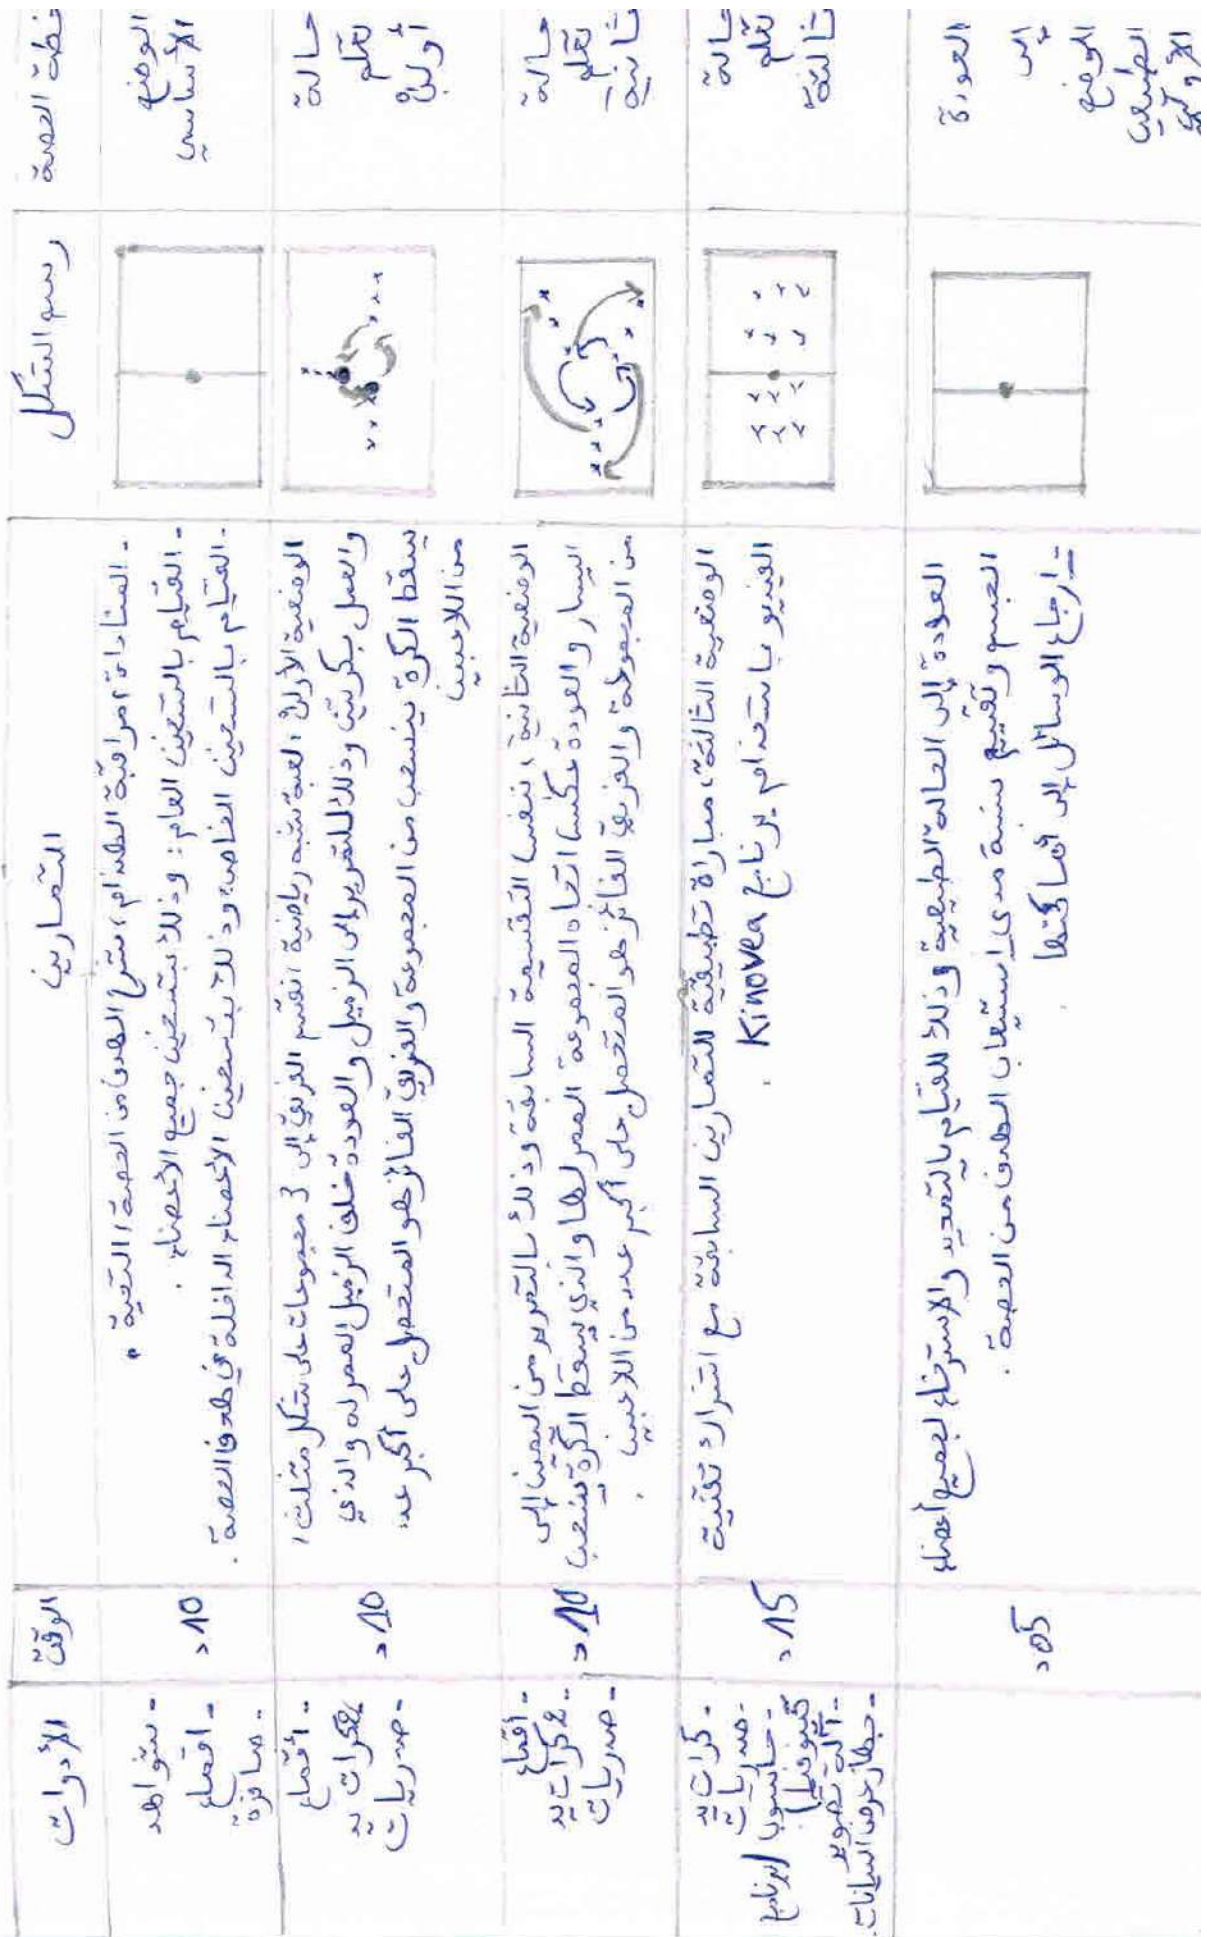 خطة الحصة
رسم الشكل
التمارين
الوقت
الأدوات
الوضع
الأساسي
- المناداة، مراقبة الهندام، شرح الهدف من الحصة، التحية.
- القيام بالتسخين العام: وذلك بتسخين جميع الأعضاء.
- القيام بالتسخين الخاص: وذلك بتسخين الأعضاء الداخلة في هدف الحصة.
10د
- شواهد
- أقماع
- صافرة
حالة
تعلم
أولى
الوضعية الأولى: لعبة شبه رياضية انقسم الفريق إلى 3 مجموعات على شكل مثلث،
والعمل بكرتين وذلك للتمرير إلى الزميل والعودة خلف الزميل الممرر له والذي
يسقط الكرة ينسحب من المجموعة والفريق الفائز هو المتحصل على أكبر عدد
من اللاعبين
10د
- أقماع
2 كرات يد
- صدريات
حالة
تعلم
ثانية
الوضعية الثانية: نفس التقسيمة السابقة وذلك بالتمرير من اليمين إلى
اليسار والعودة عكس اتجاه المجموعة الممرر لها والذي يسقط الكرة ينسحب
من المجموعة والفريق الفائز هو المتحصل على أكبر عدد من اللاعبين.
10د
- أقماع
- 2 كرات يد
- صدريات
حالة
تعلم
ثالثة
الوضعية الثالثة: مباراة تطبيقية للتمارين السابقة مع اشتراك تقنية
الفيديو باستخدام برنامج Kinovea.
15د
- كرات يد
- صدريات
- حاسوب (برنامج
كينوفيا)
- آلة تصوير
- جهاز عرض البيانات.
العودة
إلى
الوضع
الطبيعي
الأولي
العودة إلى الحالة الطبيعية وذلك للقيام بالتمديد والاسترخاء لجميع أعضاء
الجسم وتقييم نسبة مدى استيعاب الهدف من الحصة.
- إرجاع الوسائل إلى أماكنها.
05د